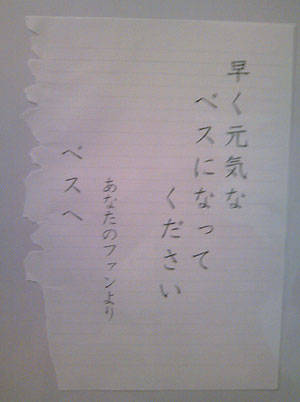 早く元気な
ベスになって
ください
あなたのファンより
ベスへ